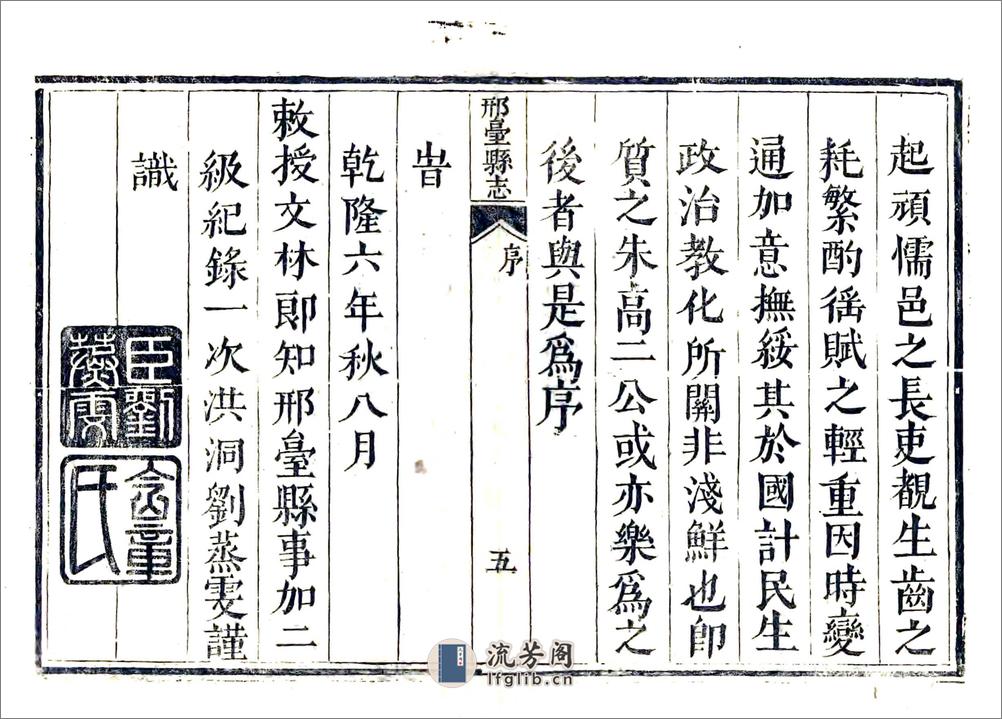 起頑懦邑之長吏覩生齒之
耗繁酌徭賦之輕重因時變
通加意撫綏其於國計民生
政治教化所關非淺鮮也卽
質之朱高二公或亦樂爲之
後者與是爲序
邢臺縣志
序
五
旹
乾隆六年秋八月
敕授文林郎知邢臺縣事加二
級紀錄一次洪洞劉蒸雯謹
識
臣劉蒸雯
氏
流芳阁
lfglib.cn